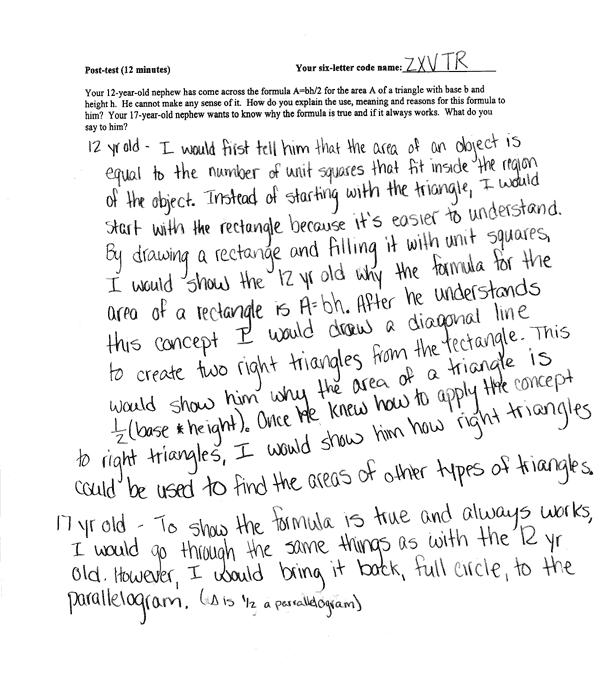 Post-test (12 minutes) Your six-letter code name: ZXVTR
Your 12-year-old nephew has come across the formula A=bh/2 for the area A of a triangle with base b and
height h. He cannot make any sense of it. How do you explain the use, meaning and reasons for this formula to
him? Your 17-year-old nephew wants to know why the formula is true and if it always works. What do you
say to him?
12 yr old - I would first tell him that the area of an object is
equal to the number of unit squares that fit inside the region
of the object. Instead of starting with the triangle, I would
start with the rectangle because it's easier to understand.
By drawing a rectange and filling it with unit squares,
I would show the 12 yr old why the formula for the
area of a rectangle is A=bh. After he understands
this concept I would draw a diagonal line
to create two right triangles from the rectangle. This
would show him why the area of a triangle is
1/2 (base * height). Once he knew how to apply the concept
to right triangles, I would show him how right triangles
could be used to find the areas of other types of triangles.
17 yr old - To show the formula is true and always works,
I would go through the same things as with the 12 yr
old. However, I would bring it back, full circle, to the
parallelogram. (Δ is 1/2 a parralelogram)